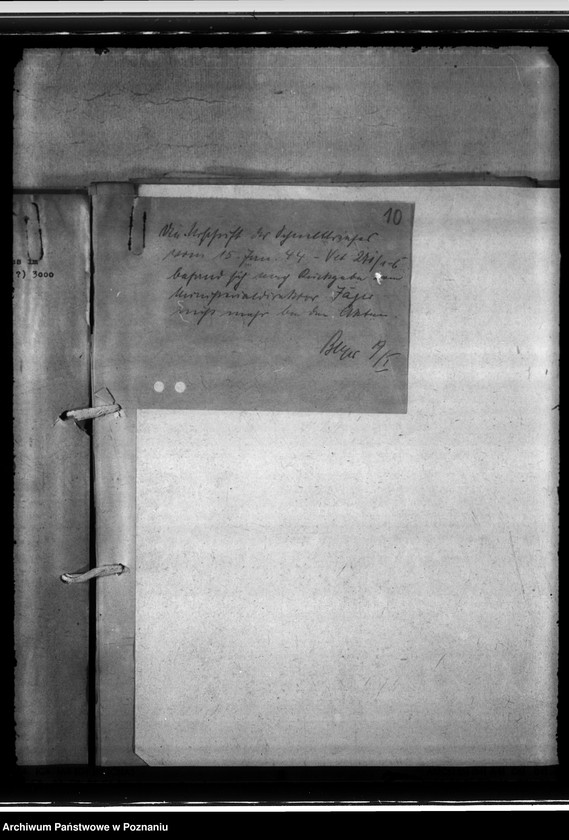 10
Die Urschrift des Schnellbriefes
vom 15. Jan 44 - VIII
befand sich nach Rückgabe von
Ministerialdirektor Jäger
nicht mehr bei den Akten.
9/II
?) 3000
Archiwum Państwowe w Poznaniu